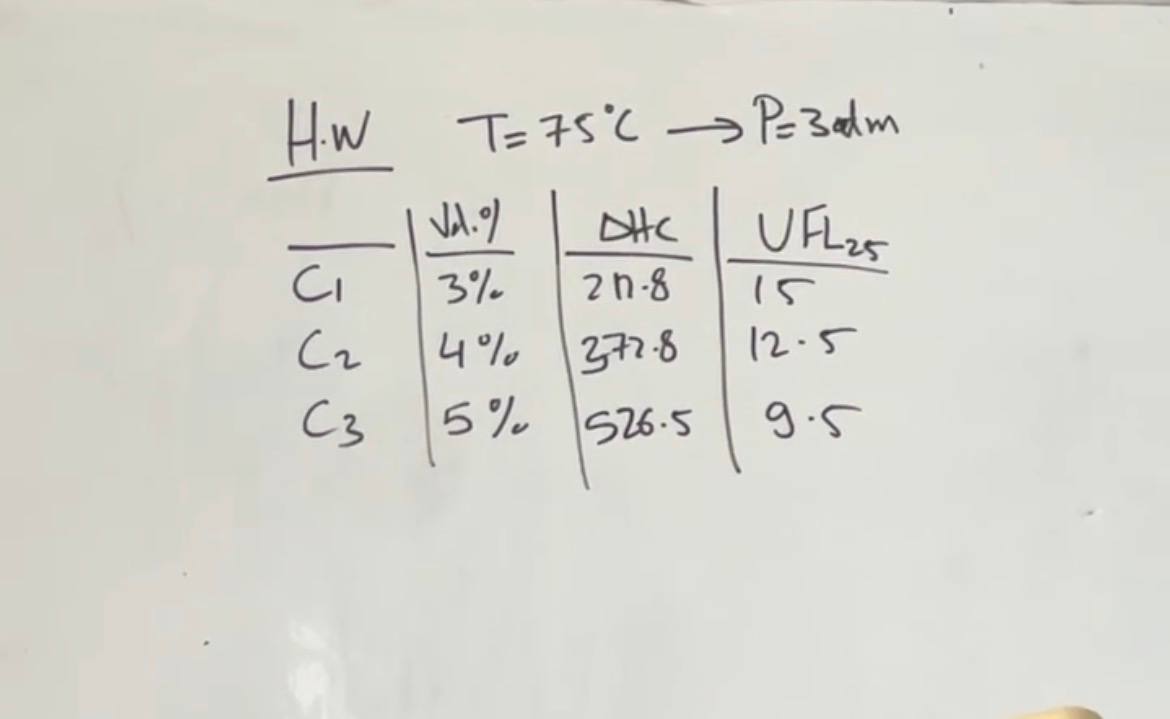 H.W T=75°C → P=3atm
Vol.% ΔHC UFL25
C1 3% 211.8 15
C2 4% 372.8 12.5
C3 5% 526.5 9.5